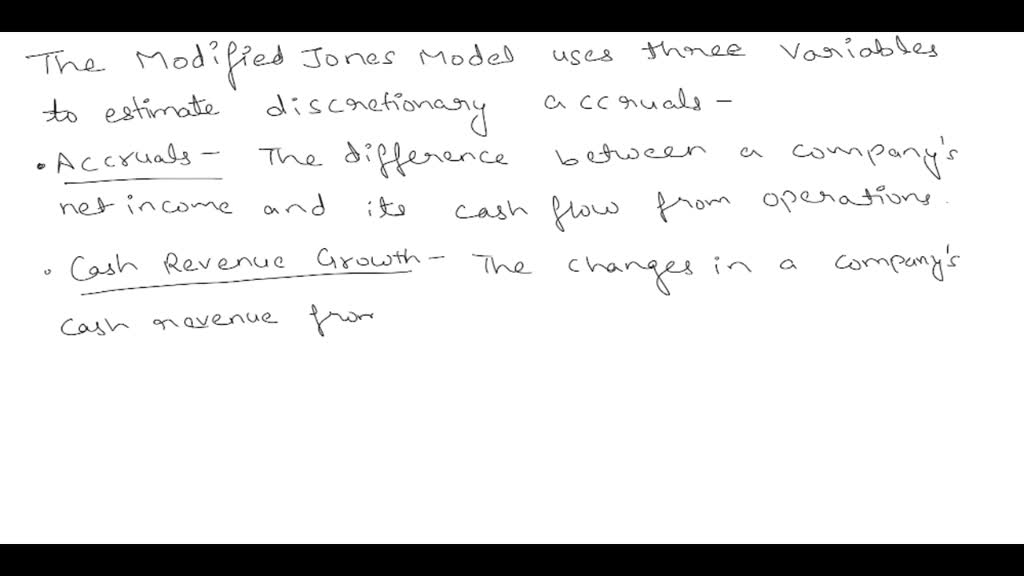 The Modified Jones Model uses three variables
to estimate discretionary accruals -
• Accruals - The difference between a company's
net income and its cash flow from operations.
• Cash Revenue Growth - The changes in a company's
cash revenue from